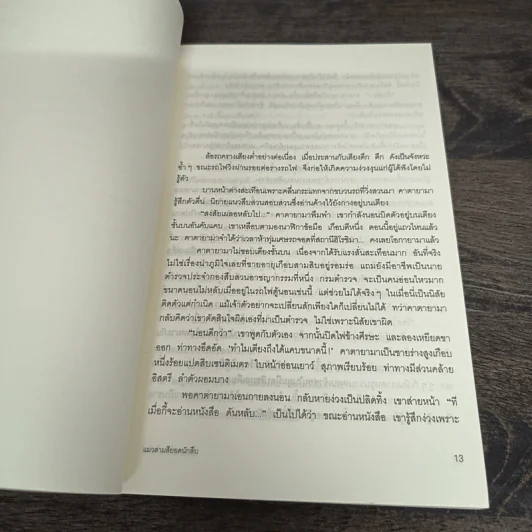 ล้อรถครางเสียงต่ำอย่างต่อเนื่อง เมื่อประสานกับเสียงตึก ตึก ดังเป็นจังหวะ
ซ้ำๆ ขณะรถไฟวิ่งผ่านรอยต่อรางรถไฟ จึงก่อให้เกิดความง่วงงุนแก่ผู้ได้ฟังโดยไม่
รู้ตัว
บานหน้าต่างสะเทือนเพราะคลื่นกระแทกจากขบวนรถที่วิ่งสวนมา คาตายามา
รู้สึกตัวตื่น นิยายแนวสืบสวนสอบสวนซึ่งอ่านค้างไว้ยังกางอยู่บนเตียง
"สงสัยเผลอหลับไป..." คาตายามาพึมพำ เขากำลังนอนเปิดตัวอยู่บนเตียง
ชั้นบนอันคับแคบ เขาเหลือบตามองนาฬิกาข้อมือ เกือบตีหนึ่ง ตอนนี้อยู่แถวไหนแล้ว
นะ คาตายามาจำได้ว่าเวลาห้าทุ่มเศษรถจอดที่สถานีฮิโรชิมา... คงเลยโอกายามาแล้ว
คาตายามาไม่ชอบเตียงชั้นบน เนื่องจากได้รับแรงสั่นสะเทือนมาก อันที่จริง
ไม่ใช่เรื่องน่าภูมิใจเลยที่ชายอายุเกือบสามสิบอยู่รอมร่อ แถมยังมีอาชีพเป็นนาย
ตำรวจประจำกองสืบสวนอาชญากรรมที่หนึ่ง กรมตำรวจ จะเป็นคนอ่อนไหวมาก
ขนาดนอนไม่หลับเมื่ออยู่ในรถไฟตู้นอนเช่นนี้ แต่ช่วยไม่ได้จริงๆ ในเมื่อนี่เป็นนิสัย
ติดตัวแต่กำเนิด แม้เจ้าตัวอยากจะเปลี่ยนสักเพียงใดก็เปลี่ยนไม่ได้ ทว่าคาตายามา
กลับคิดว่าเขาตัดสินใจผิดเองที่มาเป็นตำรวจ ไม่ใช่เพราะนิสัยเขาผิด
"นอนดีกว่า" เขาพูดกับตัวเอง จากนั้นปิดไฟข้างศีรษะ และลองเหยียดขา
ออก ท่าทางอึดอัด 'ทำไมเตียงถึงได้แคบขนาดนี้!' คาตายามาเป็นชายร่างสูงเกือบ
หนึ่งร้อยแปดสิบเซนติเมตร ใบหน้าอ่อนเยาว์ สุภาพเรียบร้อย ท่าทางมีส่วนคล้าย
อิสตรี ลำตัวผอมบาง
พอคาตายามาเอนกายลงนอน กลับหายง่วงเป็นปลิดทิ้ง เขาส่ายหน้า "ที
เมื่อกี้จะอ่านหนังสือ ดันหลับ..." เป็นไปได้ว่า ขณะอ่านหนังสือ เขารู้สึกง่วงเพราะ
แมวสามสียอดนักสืบ
13